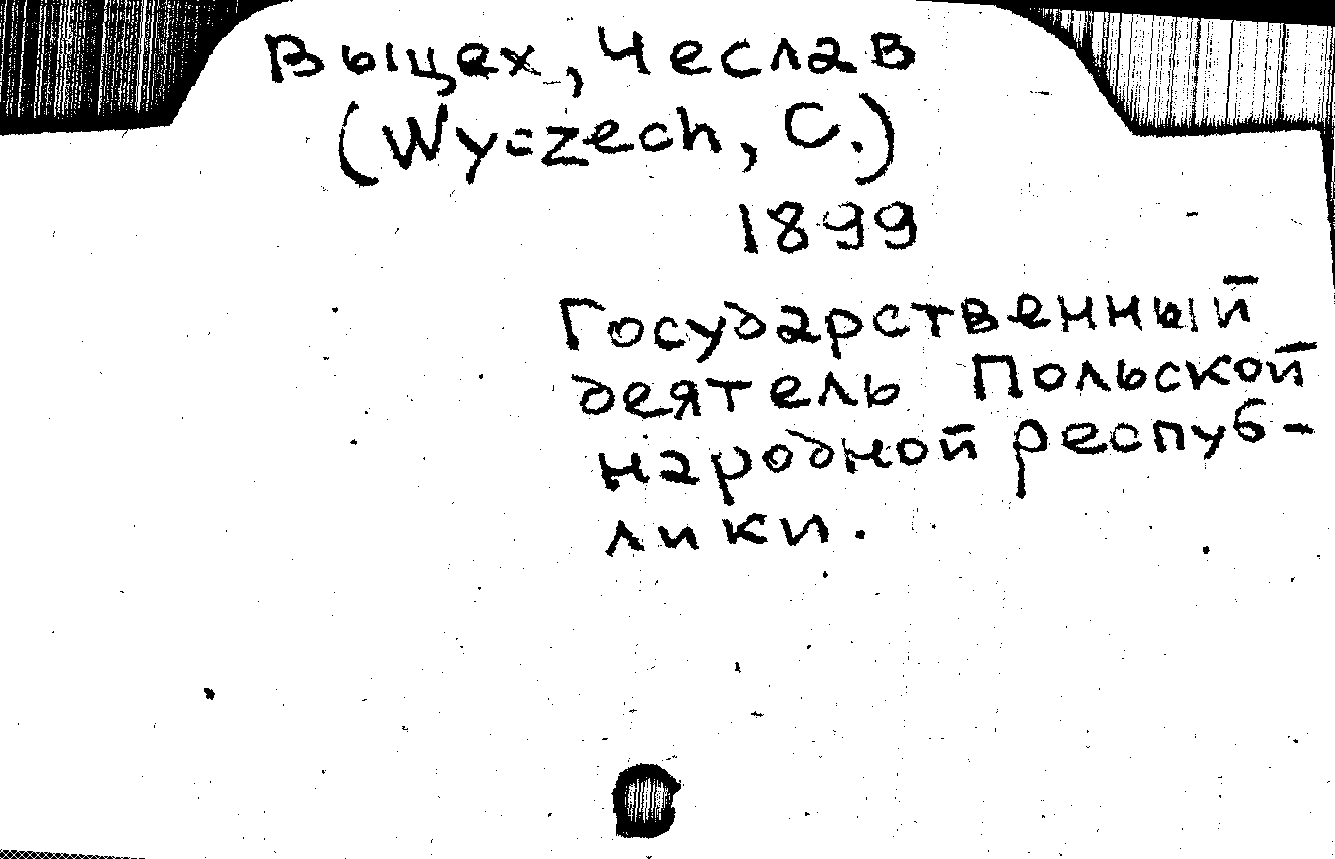 Выцех, Чеслав
(Wyczech, C.)
1899
Государственный
деятель Польской
народной респуб-
лики.